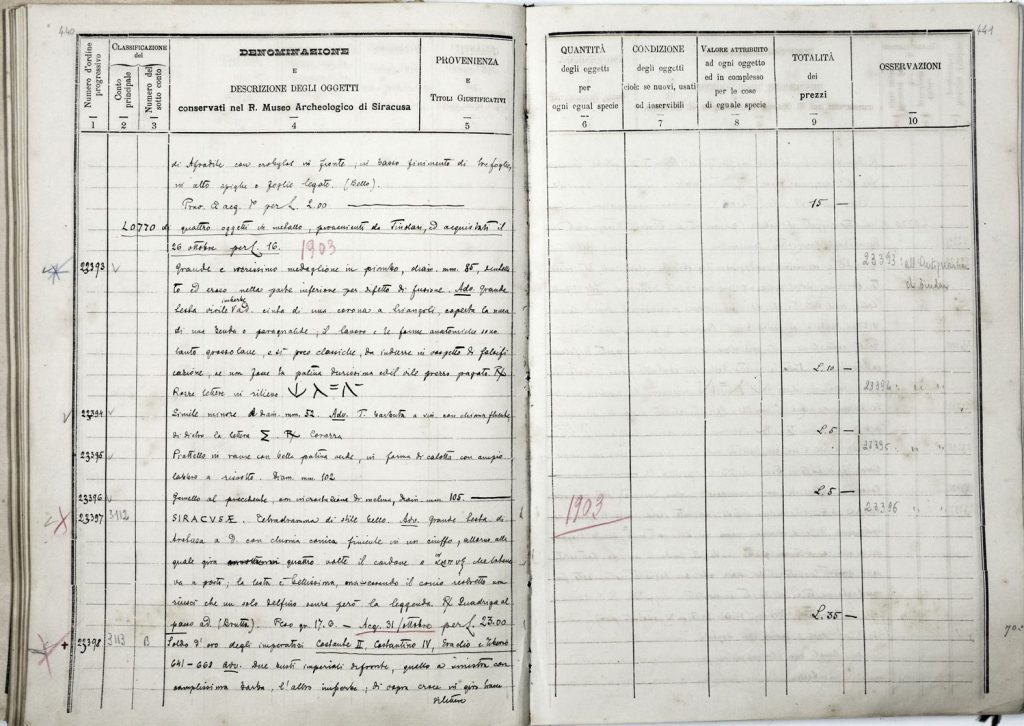 440
Numero d'ordine progressivo
CLASSIFICAZIONE del
Conto principale
Numero del sotto conto
DENOMINAZIONE
E
DESCRIZIONE DEGLI OGGETTI
conservati nel R. Museo Archeologico di Siracusa
PROVENIENZA
E
TITOLI GIUSTIFICATIVI
1 2 3 4 5
di Afrodite con crobylos in fronte; in basso finimento di tre foglie,
in alto spighe e foglie legate. (Bello).
acq. per L. 2.00
quattro oggetti in metallo, provenienti da Tindari, ed acquistati il
26 ottobre per L. 16. 1903
22393 Grande e medaglione in piombo, diam. mm. 85,
to ed eroso nella parte inferiore per difetto di fusione. Adv. Grande
testa virile imberbe ad. cinta di una corona a triangoli, coperta la nuca
di una e paragnatide; il lavoro e le forme anatomiche sono
tanto grossolane, e sì poco classiche, da indurre in sospetto di falsifi
cazione, se non fosse la patina durissima ed il vile prezzo pagato. Rx
Rozze lettere in rilievo
22394 Simile minore diam. mm. 52. Adv. T. barbuta a sin. con chioma fluente,
di dietro la lettera Σ. Rx
22395 Piattello in rame con bella patina verde, in forma di calotta con ampio
labbro a risvolto. Diam. mm. 102
22396 Gemello al precedente, con incrostazione di diam. mm. 105.
22397 3112 SIRACUSÆ. Tetradramma di stile bello. Adv. Grande testa di
Aretusa a D. con chioma conica finiente in un ciuffo, attorno alla
quale gira quattro volte il cordone
va a posto; la testa è bellissima, ma essendo il conio ristretto non
riuscì che un solo delfino senza però la leggenda. Rx Quadriga al
passo ad. (Brutta). Peso gr. 17.0. — Acq. 31/ottobre per L. 23.00
22398 3113 B Soldo d'oro degli imperatori Costante II, Costantino IV, Eraclio e Tiberio
641-668 adv. Due busti imperiali di fronte, quello a sinistra con
amplissima barba, l'altro imberbe; di sopra croce in giro
441
QUANTITÀ
degli oggetti
per
ogni egual specie
6
CONDIZIONE
degli oggetti
cioè: se nuovi, usati
od inservibili
7
VALORE ATTRIBUITO
ad ogni oggetto
ed in complesso
per le cose
di eguale specie
8
TOTALITÀ
dei
prezzi
9
OSSERVAZIONI
10
15 —
22393 : all'Antiquarium
di Tindari
L. 10 —
22394 " " "
L. 5 —
22395 " "
L. 5 —
1903
22396 " "
L. 35 —